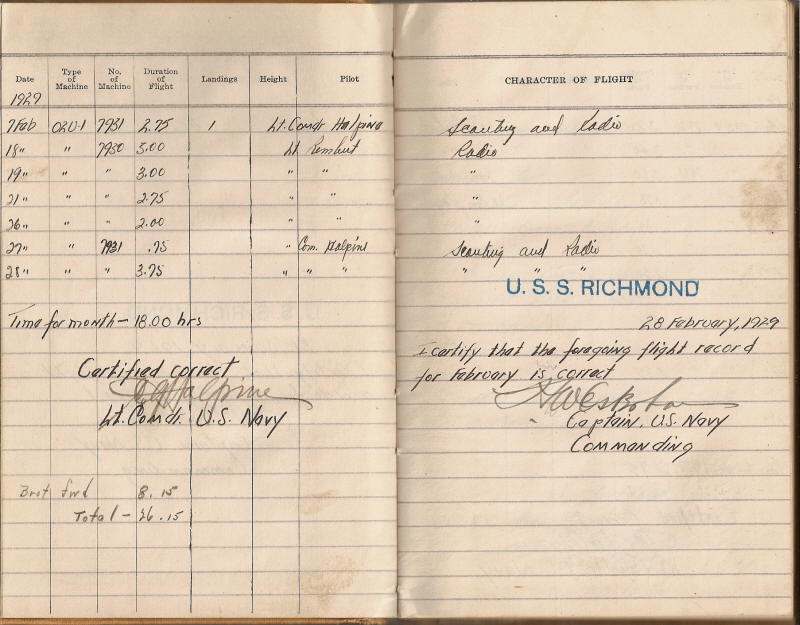 Date Type of Machine No. of Machine Duration of Flight Landings Height Pilot
1929
7 Feb O2U-1 7931 2.75 1 Lt. Comdr Halpine
18" " 7930 3.00 Lt
19" " " 3.00 " "
21" " " 2.75 " "
26" " " 2.00 " "
27" " 7931 .75 " Com. Halpine
28" " " 3.75 " " "
Time for month - 18.00 hrs
Certified correct
Halpine
Lt. Comdr. U.S. Navy
Brot fwd 8.15
Total - 26.15
CHARACTER OF FLIGHT
Scouting and Radio
Radio
"
"
"
Scouting and Radio
" " "
U. S. S. RICHMOND
28 February, 1929
I certify that the foregoing flight record
for February is correct
Captain, U.S. Navy
Commanding